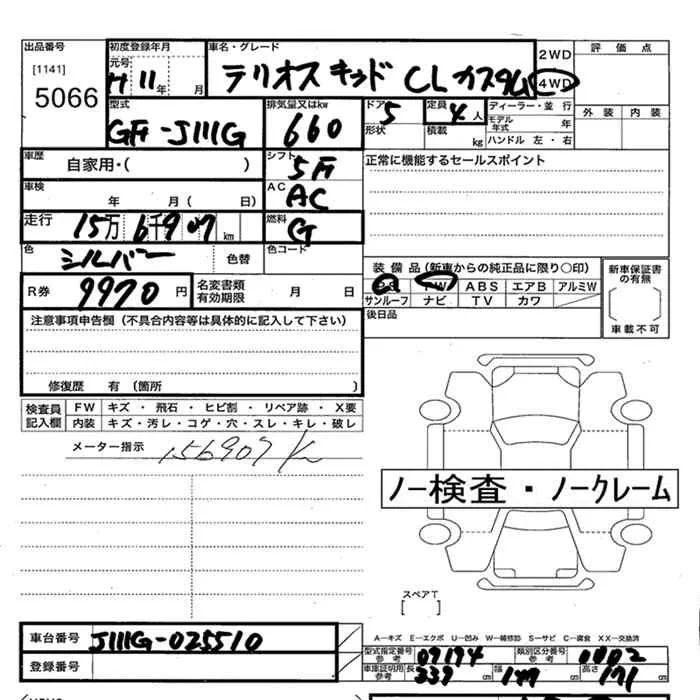 出品番号 初度登録年月 車名・グレード 評価点
[1141] 元号 H11年 月 テリオスキッド CLカスタム 2WD
5066 4WD
型式 排気量又はkw ドア 定員 ディーラー・並行 外装 内装
GF-J111G 660 5 4人 モデル年式 年
形状 積載 kg ハンドル 左・右
車歴 自家用・( ) シフト 5F 正常に機能するセールスポイント
車検 年 月( 日) AC AC
走行 15万6千907km 燃料 G
色 シルバー 色替 色コード
装備品(新車からの純正品に限り○印) 新車保証書の有無
R券 9970円 名変書類有効期限 月 日 PS PW ABS エアB アルミW
サンルーフ ナビ TV カワ
注意事項申告欄(不具合内容等は具体的に記入して下さい) 後日品 車載不可
修復歴 有(箇所 )
検査員記入欄 FW キズ・飛石・ヒビ割・リペア跡・X要
内装 キズ・汚レ・コゲ・穴・スレ・キレ・破レ
メーター指示 156907
ノー検査・ノークレーム
スペアT
[ ]
A-キズ E-エクボ U-凹み W-補修跡 S-サビ C-腐食 XX-交換済
車台番号 J111G-025510 型式指定番号 参考 09194 類別区分番号 参考 0002
登録番号 車庫証明用 参考 長 339cm 幅 cm 高さ 171cm